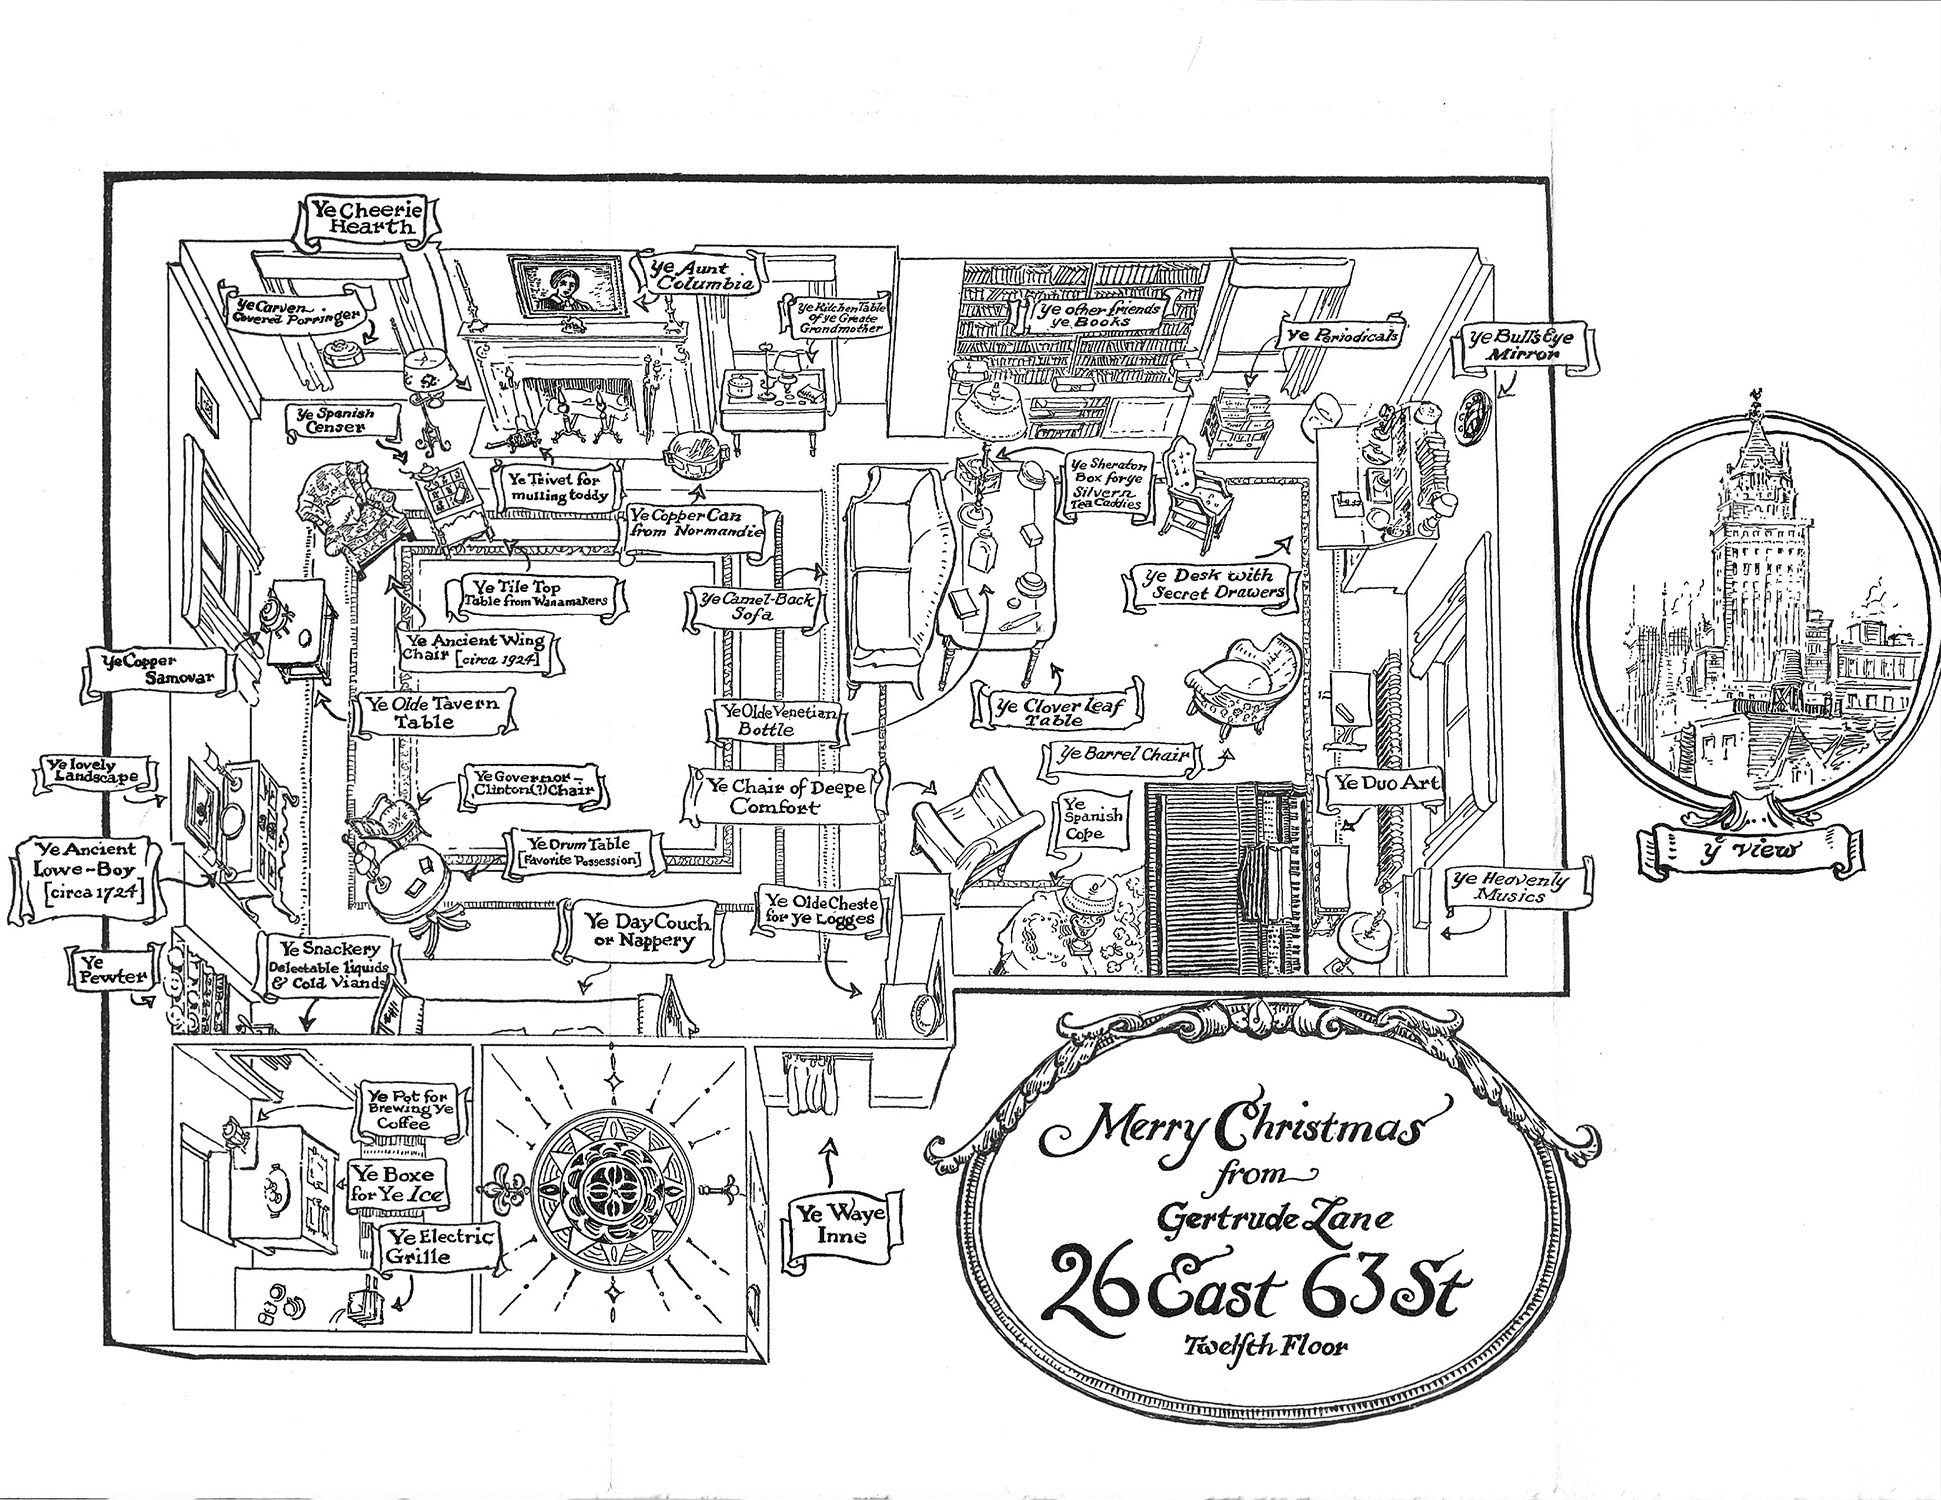 Ye Cheerie
Hearth
Ye Aunt
Columbia
Ye Carven
Covered Porringer
Ye Kitchen Table
of ye Greate
Grandmother
Ye other friends
ye Books
Ye Periodicals
Ye Bull's Eye
Mirror
Ye Spanish
Censer
Ye Trivet for
mulling toddy
Ye Copper Can
from Normandie
Ye Sheraton
Box for ye
Silvern
Tea Caddies
Ye Tile Top
Table from Wanamakers
Ye Camel-Back
Sofa
Ye Desk with
Secret Drawers
Ye Ancient Wing
Chair [circa 1924]
Ye Copper
Samovar
Ye Olde Tavern
Table
Ye Olde Venetian
Bottle
Ye Clover Leaf
Table
Ye Barrel Chair
Ye lovely
Landscape
Ye Governor-
Clinton(?) Chair
Ye Chair of Deepe
Comfort
Ye
Spanish
Cope
Ye Duo Art
y view
Ye Ancient
Lowe-Boy
[circa 1724]
Ye Drum Table
[Favorite Possession]
Ye Heavenly
Musics
Ye Day Couch
or Nappery
Ye Olde Cheste
for ye Logges
Ye
Pewter
Ye Snackery
Delectable liquids
& Cold Viands
Ye Pot for
Brewing Ye
Coffee
Ye Boxe
for Ye Ice
Ye Electric
Grille
Ye Waye
Inne
Merry Christmas
from
Gertrude Lane
26 East 63 St
Twelfth Floor